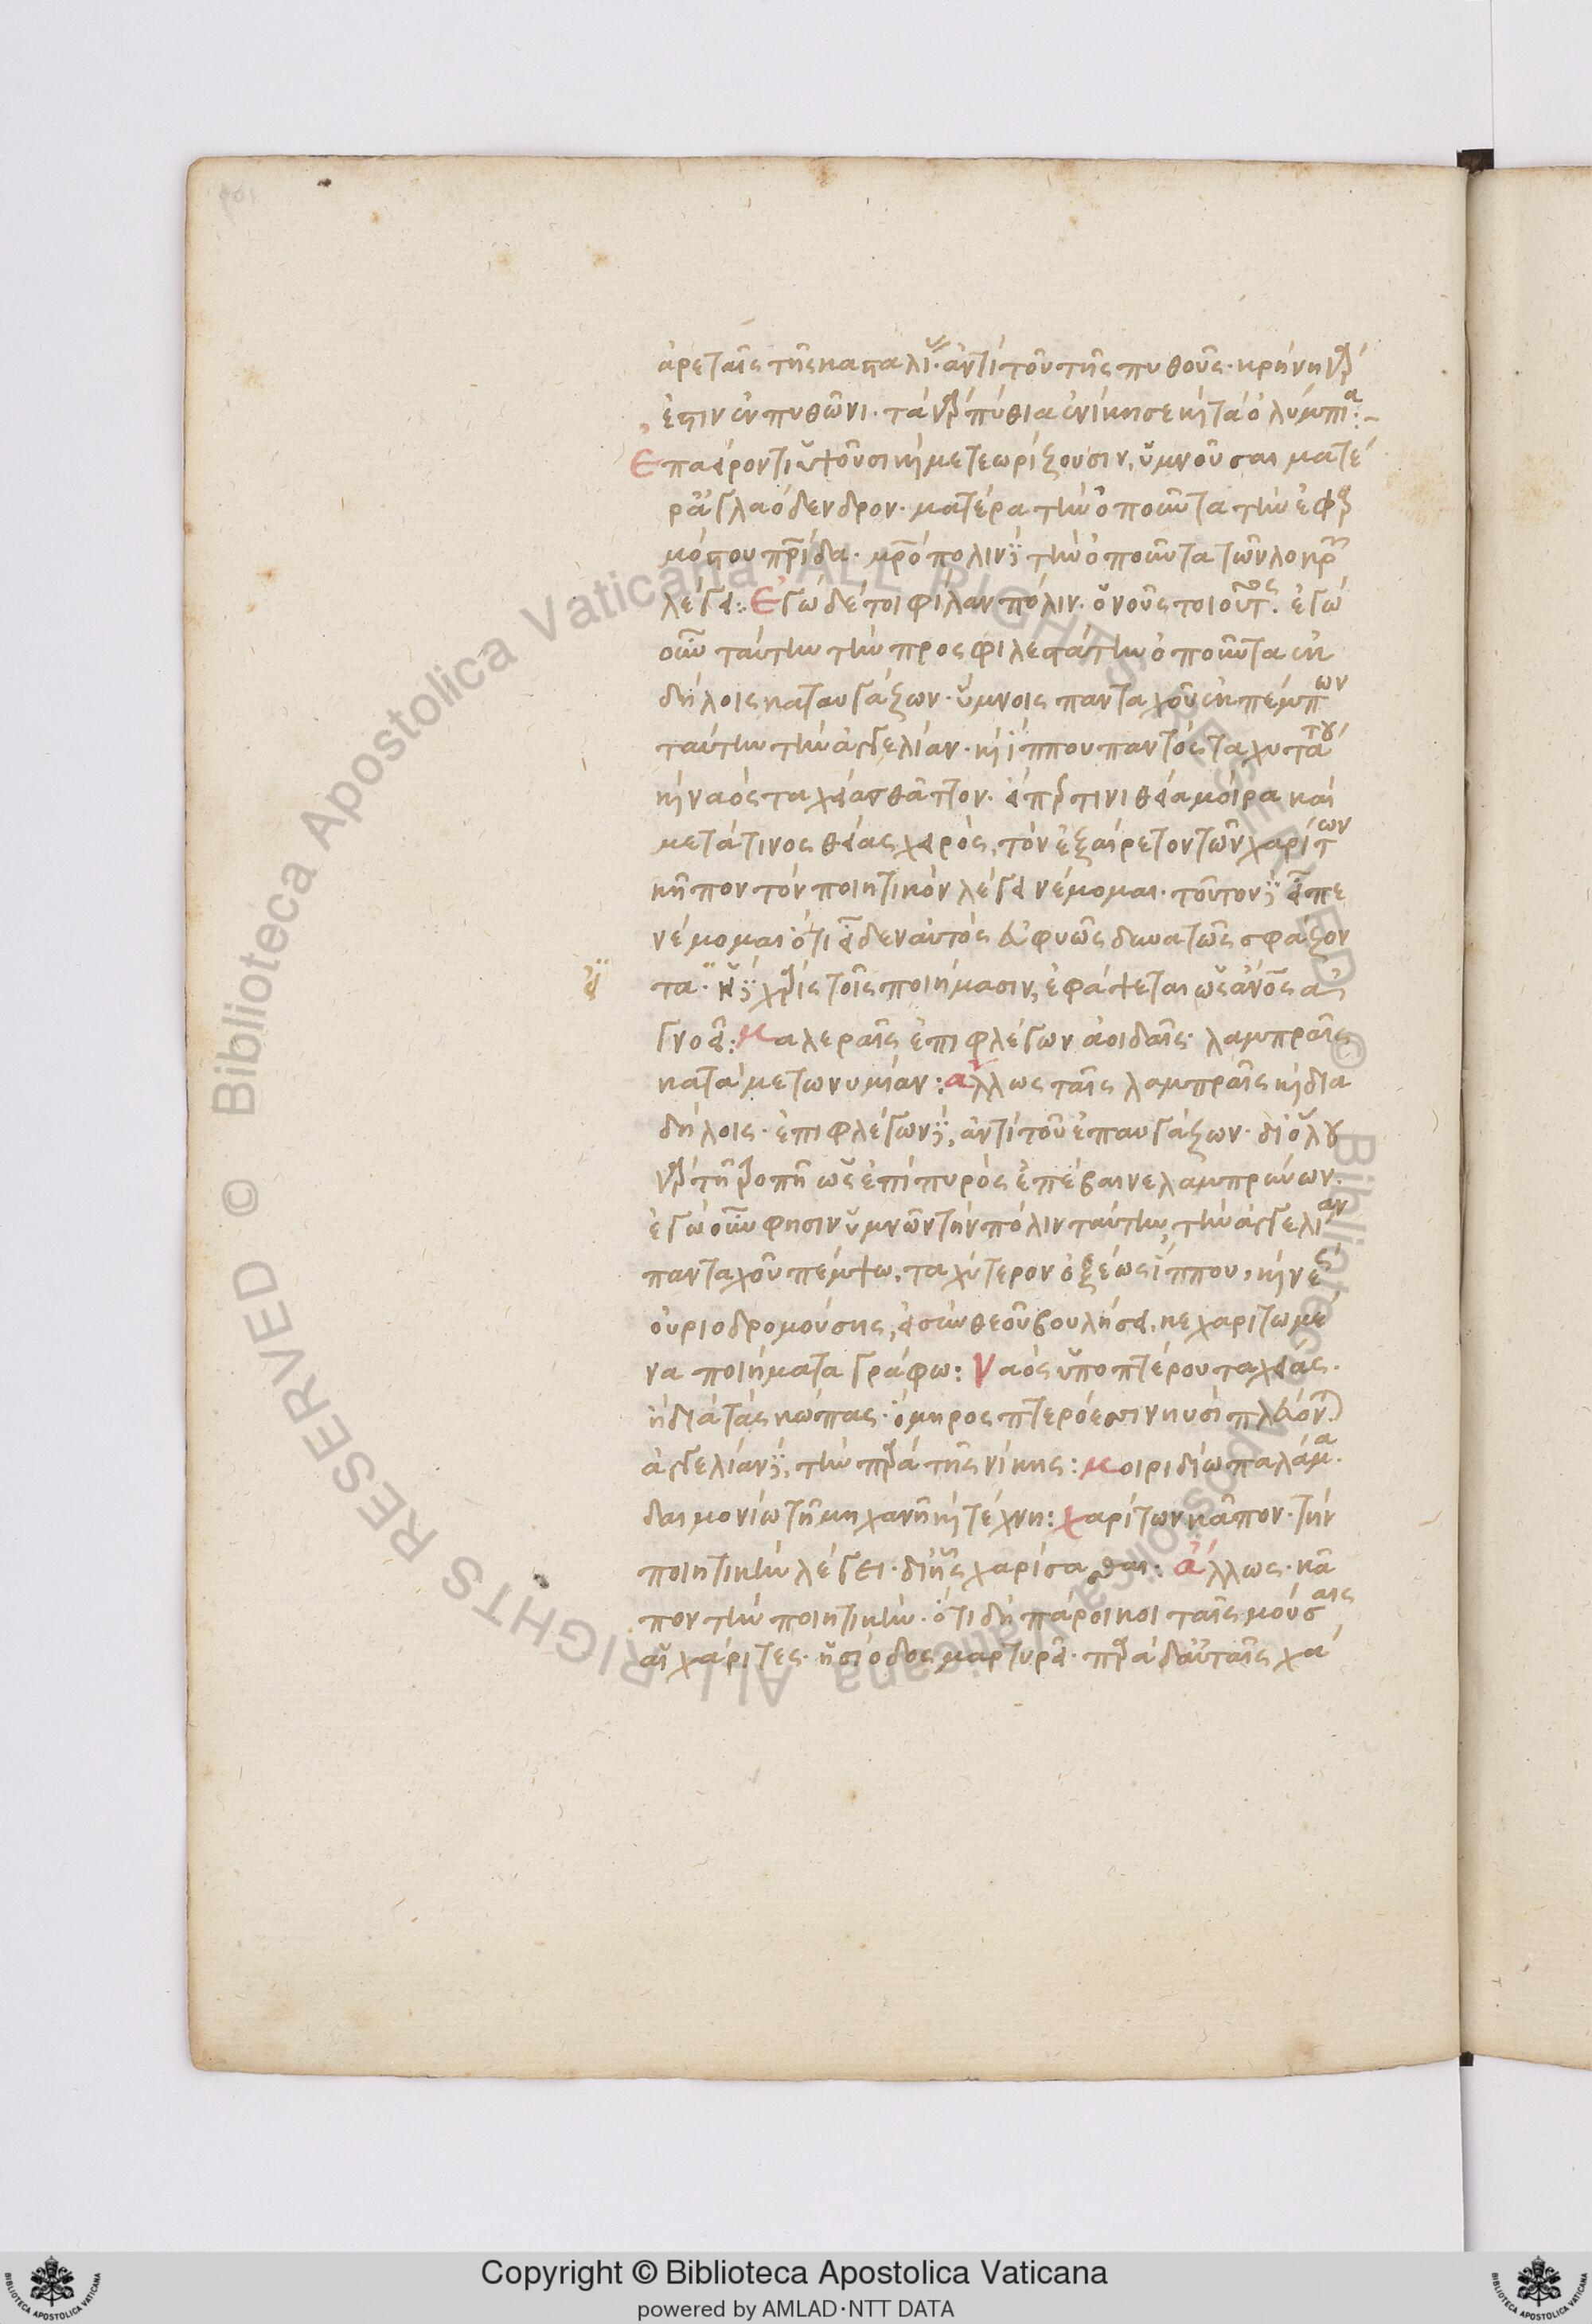 ἀρεταῖς τῆς κασταλί· ἀντὶ τοῦ τῆς πυθοῦς· κρήνη γάρ
ἐστιν ἐν πυθῶνι· τὰ γὰρ πύθια ἐνίκησε καὶ τὰ ὀλύμπια:-
Επαείροντι ὑψοῦσι καὶ μετεωρίζουσιν, ὑμνοῦσαι ματέ
ρ ἀγλαόδενδρον· ματέρα τὴν ὀποῦντα τὴν ἐφαρ
μόστου πρίδα· μρόπολιν δὲ τὴν ὀποῦντα τῶν λοκρ
λέγει: Εγὼ δέ τοι φίλαν πόλιν· ὁ νοῦς τοιοῦτος· ἐγὼ
οὖν ταύτην τὴν προσφιλεστάτην ὀποῦντα ἐκ
δήλοις καταυγάζων· ὕμνοις πανταχοῦ ἐκπέμπων
ταύτην τὴν ἀγγελίαν· καὶ ἵππου παντὸς ταχυτάτου
καὶ ναὸς ταχείας θᾶττον· εἴπερ τινι θεία μοίρα καὶ
μετά τινος θείας χειρὸς, τὸν ἐξαίρετον τῶν χαρίτων
κῆπον τὸν ποιητικὸν λέγει νέμομαι· τοῦτον δὲ εἶπε
νέμομαι ὅτι εἶδεν αὐτὸς εὐφυῶς δυνατῶς σφάζον
τα· χρὶς τοῖς ποιήμασιν, ἐφάψεται ὡς ἀνος ἀ
γνοεῖ: μαλεραῖς ἐπιφλέγων ἀοιδαῖς· λαμπραῖς
κατὰ μετωνυμίαν: αλλως ταῖς λαμπραῖς καὶ δια
δήλοις· ἐπιφλέγων δὲ, ἀντὶ τοῦ ἐπαυγάζων· δι ὅλου
γὰρ τῆ τροπῆ ὡς ἐπὶ πυρὸς ἐπέβαινε λαμπρύνων.
ἐγὼ οὖν φησιν ὑμνῶν τὴν πόλιν ταύτην, τὴν ἀγγελίαν
πανταχοῦ πέμψω, ταχύτερον ὀξέως ἵππου, καὶ νεὼς
οὐριοδρομούσης, εἰ σὺν θεοῦ βουλήσει, κεχαριτωμέ
να ποιήματα γράφω: Ναὸς ὑποπτέρου ταχείας·
ἢ διὰ τὰς κώπας· ὅμηρος πτερόεσσι νηυσὶ πλέον
ἀγγελίαν δὲ, τὴν παρὰ τῆς νίκης: μοιριδίω παλάμα·
δαιμονίω τῆ μηχανῆ καὶ τέχνη: χαρίτων κᾶπον· τὴν
ποιητικὴν λέγει· δι ἧς χαρίσασθαι: ἄλλως· κᾶ
πον τὴν ποιητικὴν· ὅτι δὴ πάροικοι ταῖς μούσαις
αἱ χάριτες· ἡσίοδος μαρτυρεῖ· παρὰ δ αὐταῖς χά